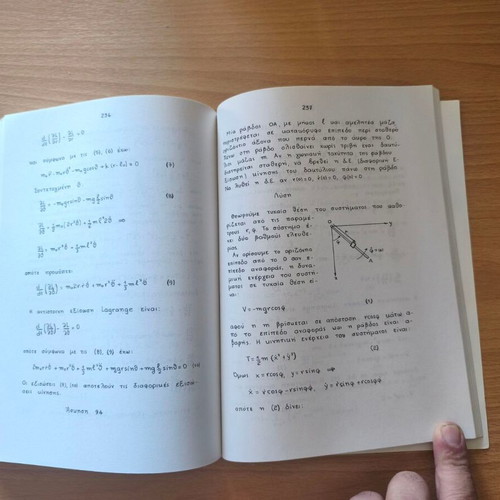 236
d/dt(∂L/∂ṙ) - ∂L/∂r = 0
που σύμφωνα με τις (5), (6) έχω:
Συντεταγμένη θ
(7)
(8)
οπότε προκύπτει:
(9)
Η αντίστοιχη εξίσωση Lagrange είναι:
d/dt(∂L/∂θ̇) - ∂L/∂θ = 0
οπότε σύμφωνα με τις (8), (9) έχω:
(10)
Οι εξισώσεις (7), (10) αποτελούν τις διαφορικές εξισώ-
σεις κίνησης.
94
Μια ράβδος ΟΑ, με μήκος ℓ και αμελητέα μάζα,
περιστρέφεται σε κατακόρυφο επίπεδο περί σταθερό
οριζόντιο άξονα που περνά από το άκρο της Ο.
Πάνω στη ράβδο ολισθαίνει χωρίς τριβή ένας δακτύ-
λιος μάζας m. Αν η γωνιακή ταχύτητα της ράβδου
διατηρείται σταθερή, να βρεθεί η Δ.Ε. (διαφορική ε-
ξίσωση) κίνησης του δακτυλίου πάνω στη ράβδο.
Να λυθεί η Δ.Ε. αν r(0)=0, ṙ(0)=0, φ(0)=0.
Λύση
Θεωρούμε τυχαία θέση του συστήματος που καθο-
ρίζεται από τις παραμέ-
τρους r, φ. Το σύστημα έ-
χει δύο βαθμούς ελευθε-
ρίας.
Αν ορίσουμε το οριζόντιο
επίπεδο από το Ο σαν ε-
πίπεδο αναφοράς, η δυνα-
μική ενέργεια του συστή-
ματος σε τυχαία θέση εί-
ναι:
φ̇=ω
V=-mgrcosφ
(1)
αφού η m βρίσκεται σε απόσταση rcosφ κάτω α-
πό το επίπεδο αναφοράς και η ράβδος είναι α-
βαρής. Η κινητική ενέργεια του συστήματος είναι:
T=½m(ẋ²+ẏ²)
(2)
Όμως x=rcosφ, y=rsinφ ⇒
ẋ=ṙcosφ-rsinφφ̇, ẏ=ṙsinφ+rcosφφ̇
οπότε η (2) δίνει: